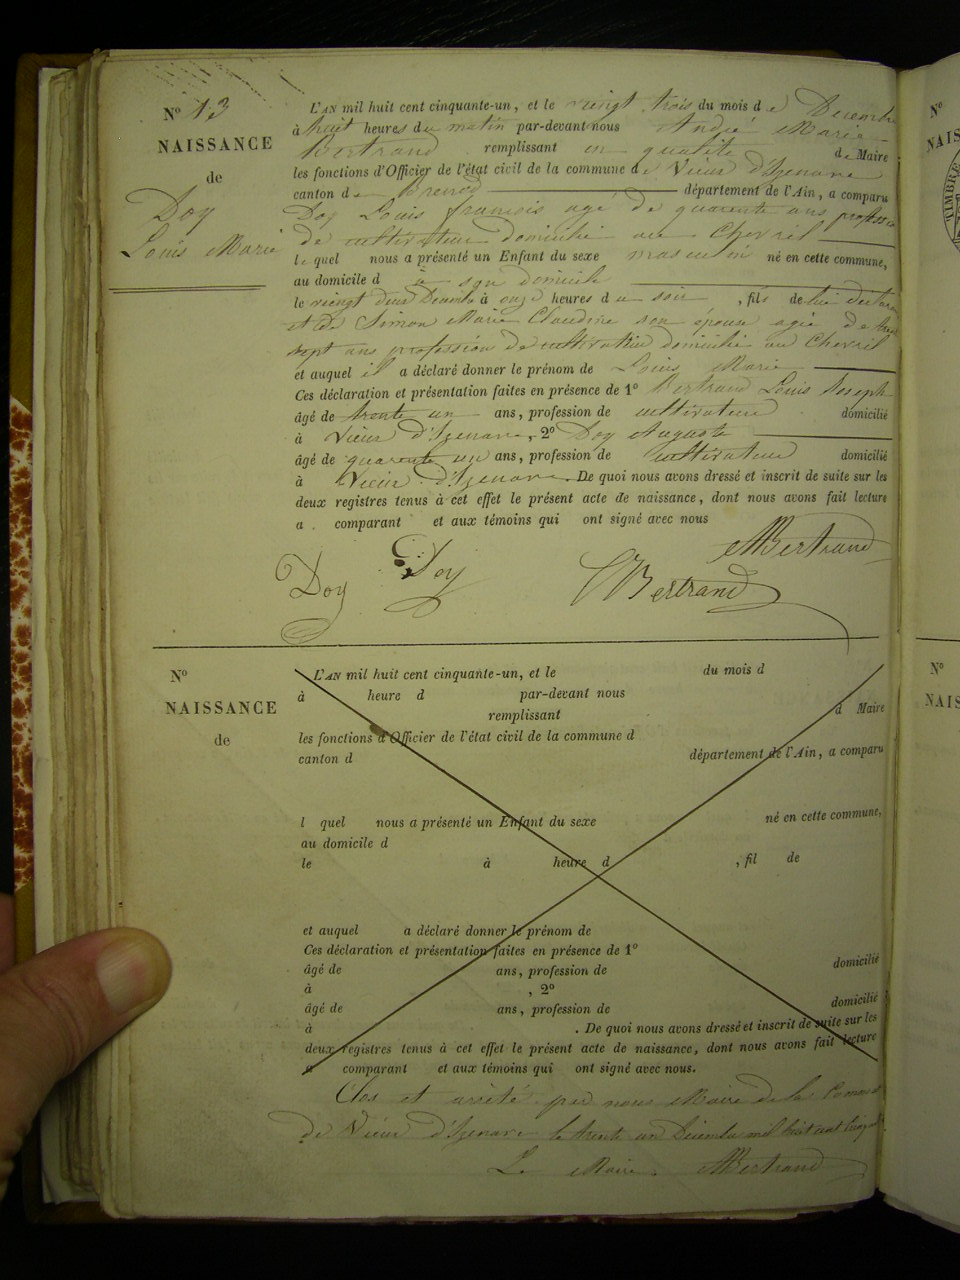 Nº 13
NAISSANCE
de
Doy
Louis Marie
L'AN mil huit cent cinquante-un, et le vingt trois du mois de Décembre
à huit heures du matin par-devant nous André Marie
Bertrand remplissant en qualité de Maire
les fonctions d'Officier de l'état civil de la commune de Vieux d'Izenave
canton de Brenod département de l'Ain, a comparu
Doy Louis françois agé de quarante ans profession
de cultivateur domicilié au Chevril
lequel nous a présenté un Enfant du sexe masculin né en cette commune,
au domicile d à son domicile
le vingt deux Décembre à onze heures du soir, fils de lui déclarant
et de Simon Marie Claudine son épouse agée de
sept ans profession de cultivateur domicilié au Chevril
et auquel il a déclaré donner le prénom de Louis Marie
Ces déclaration et présentation faites en présence de 1º Bertrand Louis Joseph
âgé de trente un ans, profession de cultivateur domicilié
à Vieux d'Izenave, 2º Doy Auguste
âgé de quarante un ans, profession de cultivateur domicilié
à Vieux d'Izenave. De quoi nous avons dressé et inscrit de suite sur les
deux registres tenus à cet effet le présent acte de naissance, dont nous avons fait lecture
a . comparant et aux témoins qui ont signé avec nous
ABertrand
Doy Doy Bertrand
Nº
NAISSANCE
de
L'AN mil huit cent cinquante-un, et le du mois d
à heure d par-devant nous
remplissant d Maire
les fonctions d'Officier de l'état civil de la commune d
canton d département de l'Ain, a comparu
l quel nous a présenté un Enfant du sexe né en cette commune,
au domicile d
le à heure d , fil de
et auquel a déclaré donner le prénom de
Ces déclaration et présentation faites en présence de 1º
âgé de ans, profession de domicilié
à , 2º
âgé de ans, profession de domicilié
à . De quoi nous avons dressé et inscrit de suite sur les
deux registres tenus à cet effet le présent acte de naissance, dont nous avons fait lecture
a comparant et aux témoins qui ont signé avec nous.
Clos et arrété par nous Maire de la Commune
de Vieux d'Izenave le trente un Décembre mil huit cent
Le Maire. ABertrand
Nº
NAIS
TIMBRE
Nº
NAIS